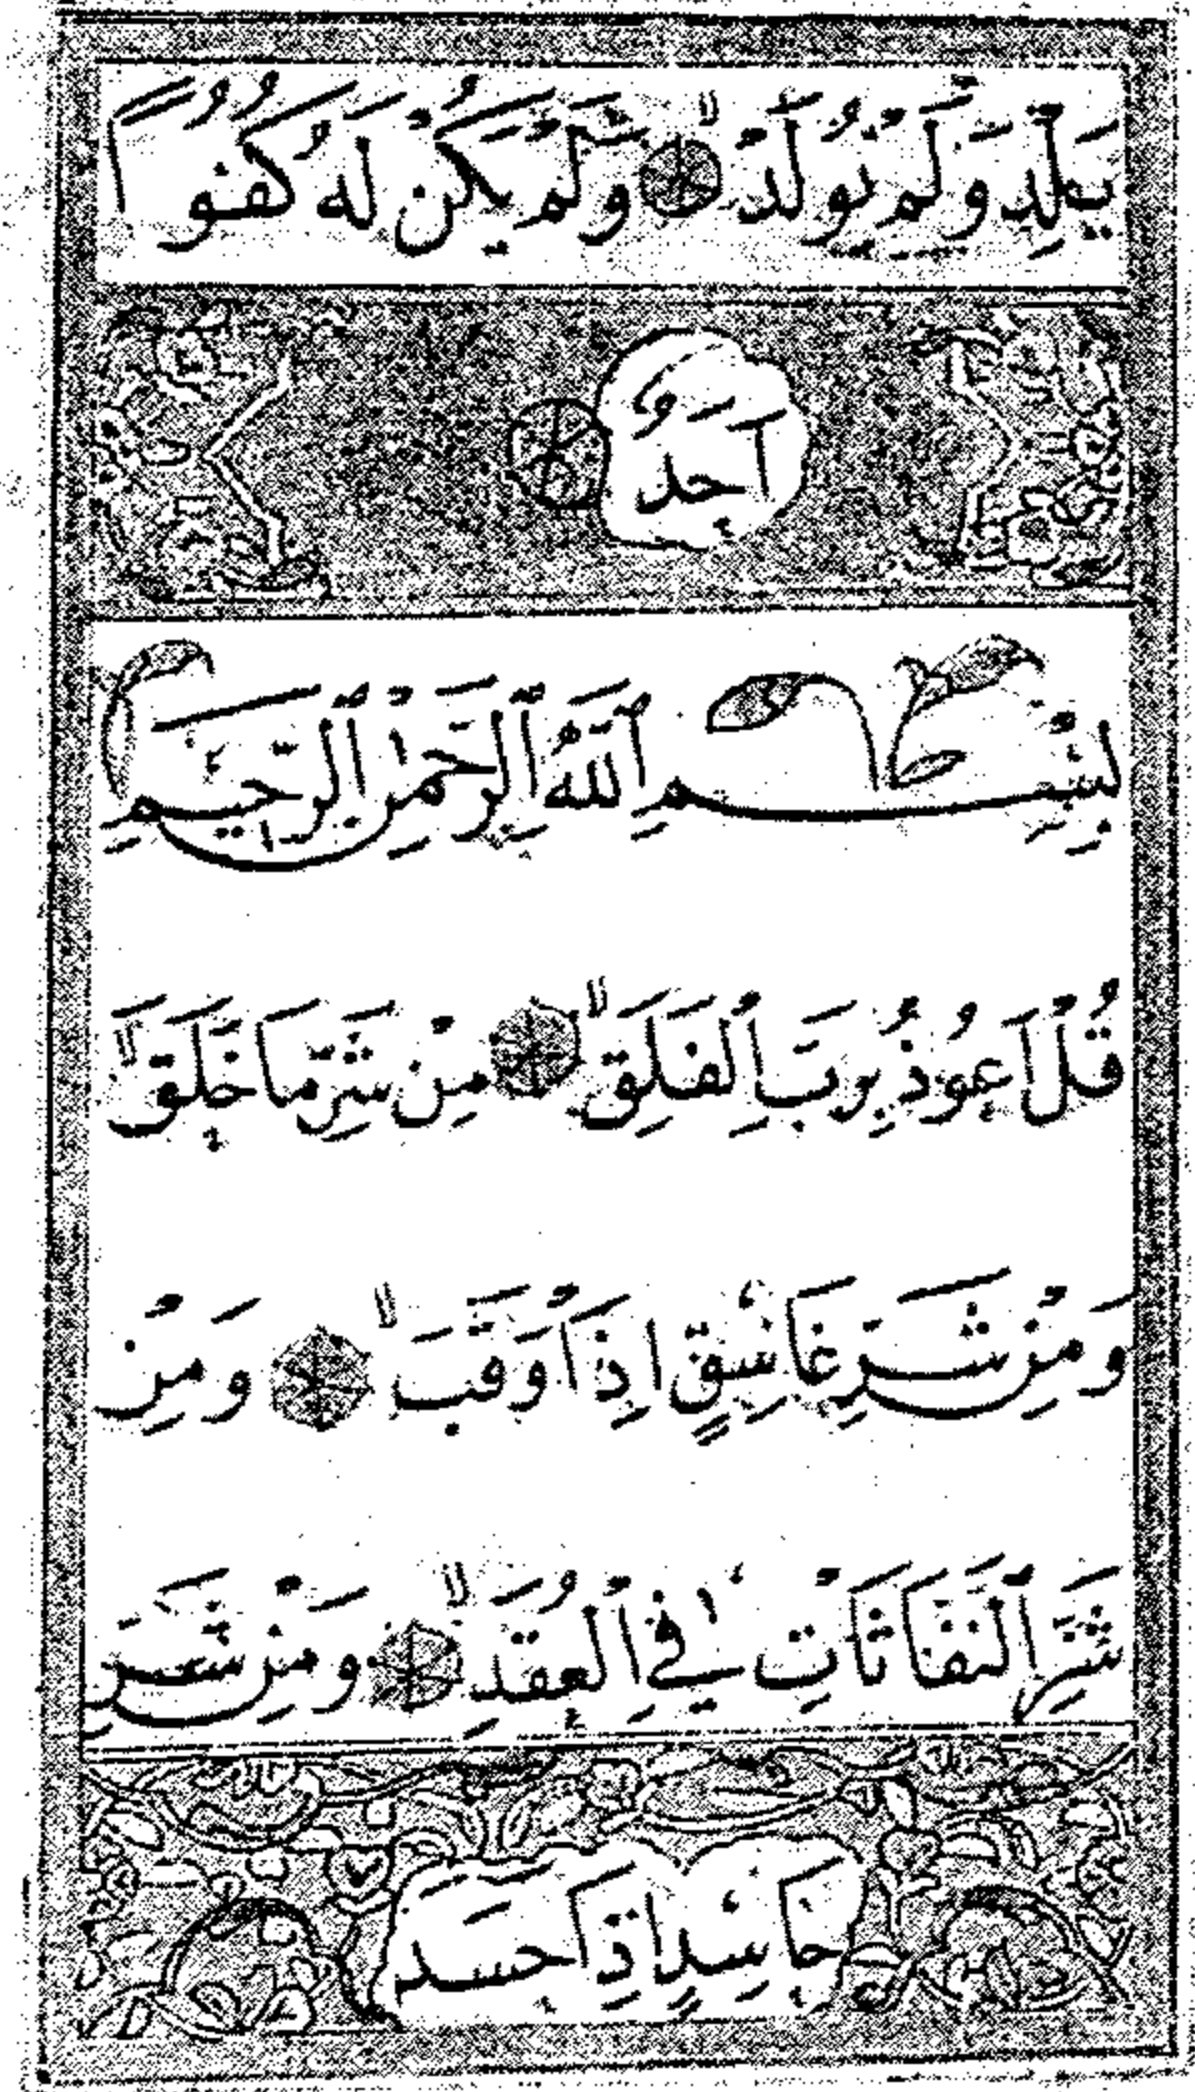 يَلِدْ وَلَمْ يُولَدْ ۙ وَلَمْ يَكُنْ لَهُ كُفُوًا
اَحَدٌ
بِسْمِ ٱللّٰهِ ٱلرَّحْمٰنِ ٱلرَّحِيمِ
قُلْ اَعُوذُ بِرَبِّ ٱلْفَلَقِ ۙ مِنْ شَرِّ مَا خَلَقَ ۙ
وَمِنْ شَرِّ غَاسِقٍ اِذَا وَقَبَ ۙ وَمِنْ
شَرِّ ٱلنَّفَّاثَاتِ فِي ٱلْعُقَدِ ۙ وَمِنْ شَرِّ
حَاسِدٍ اِذَا حَسَدَ